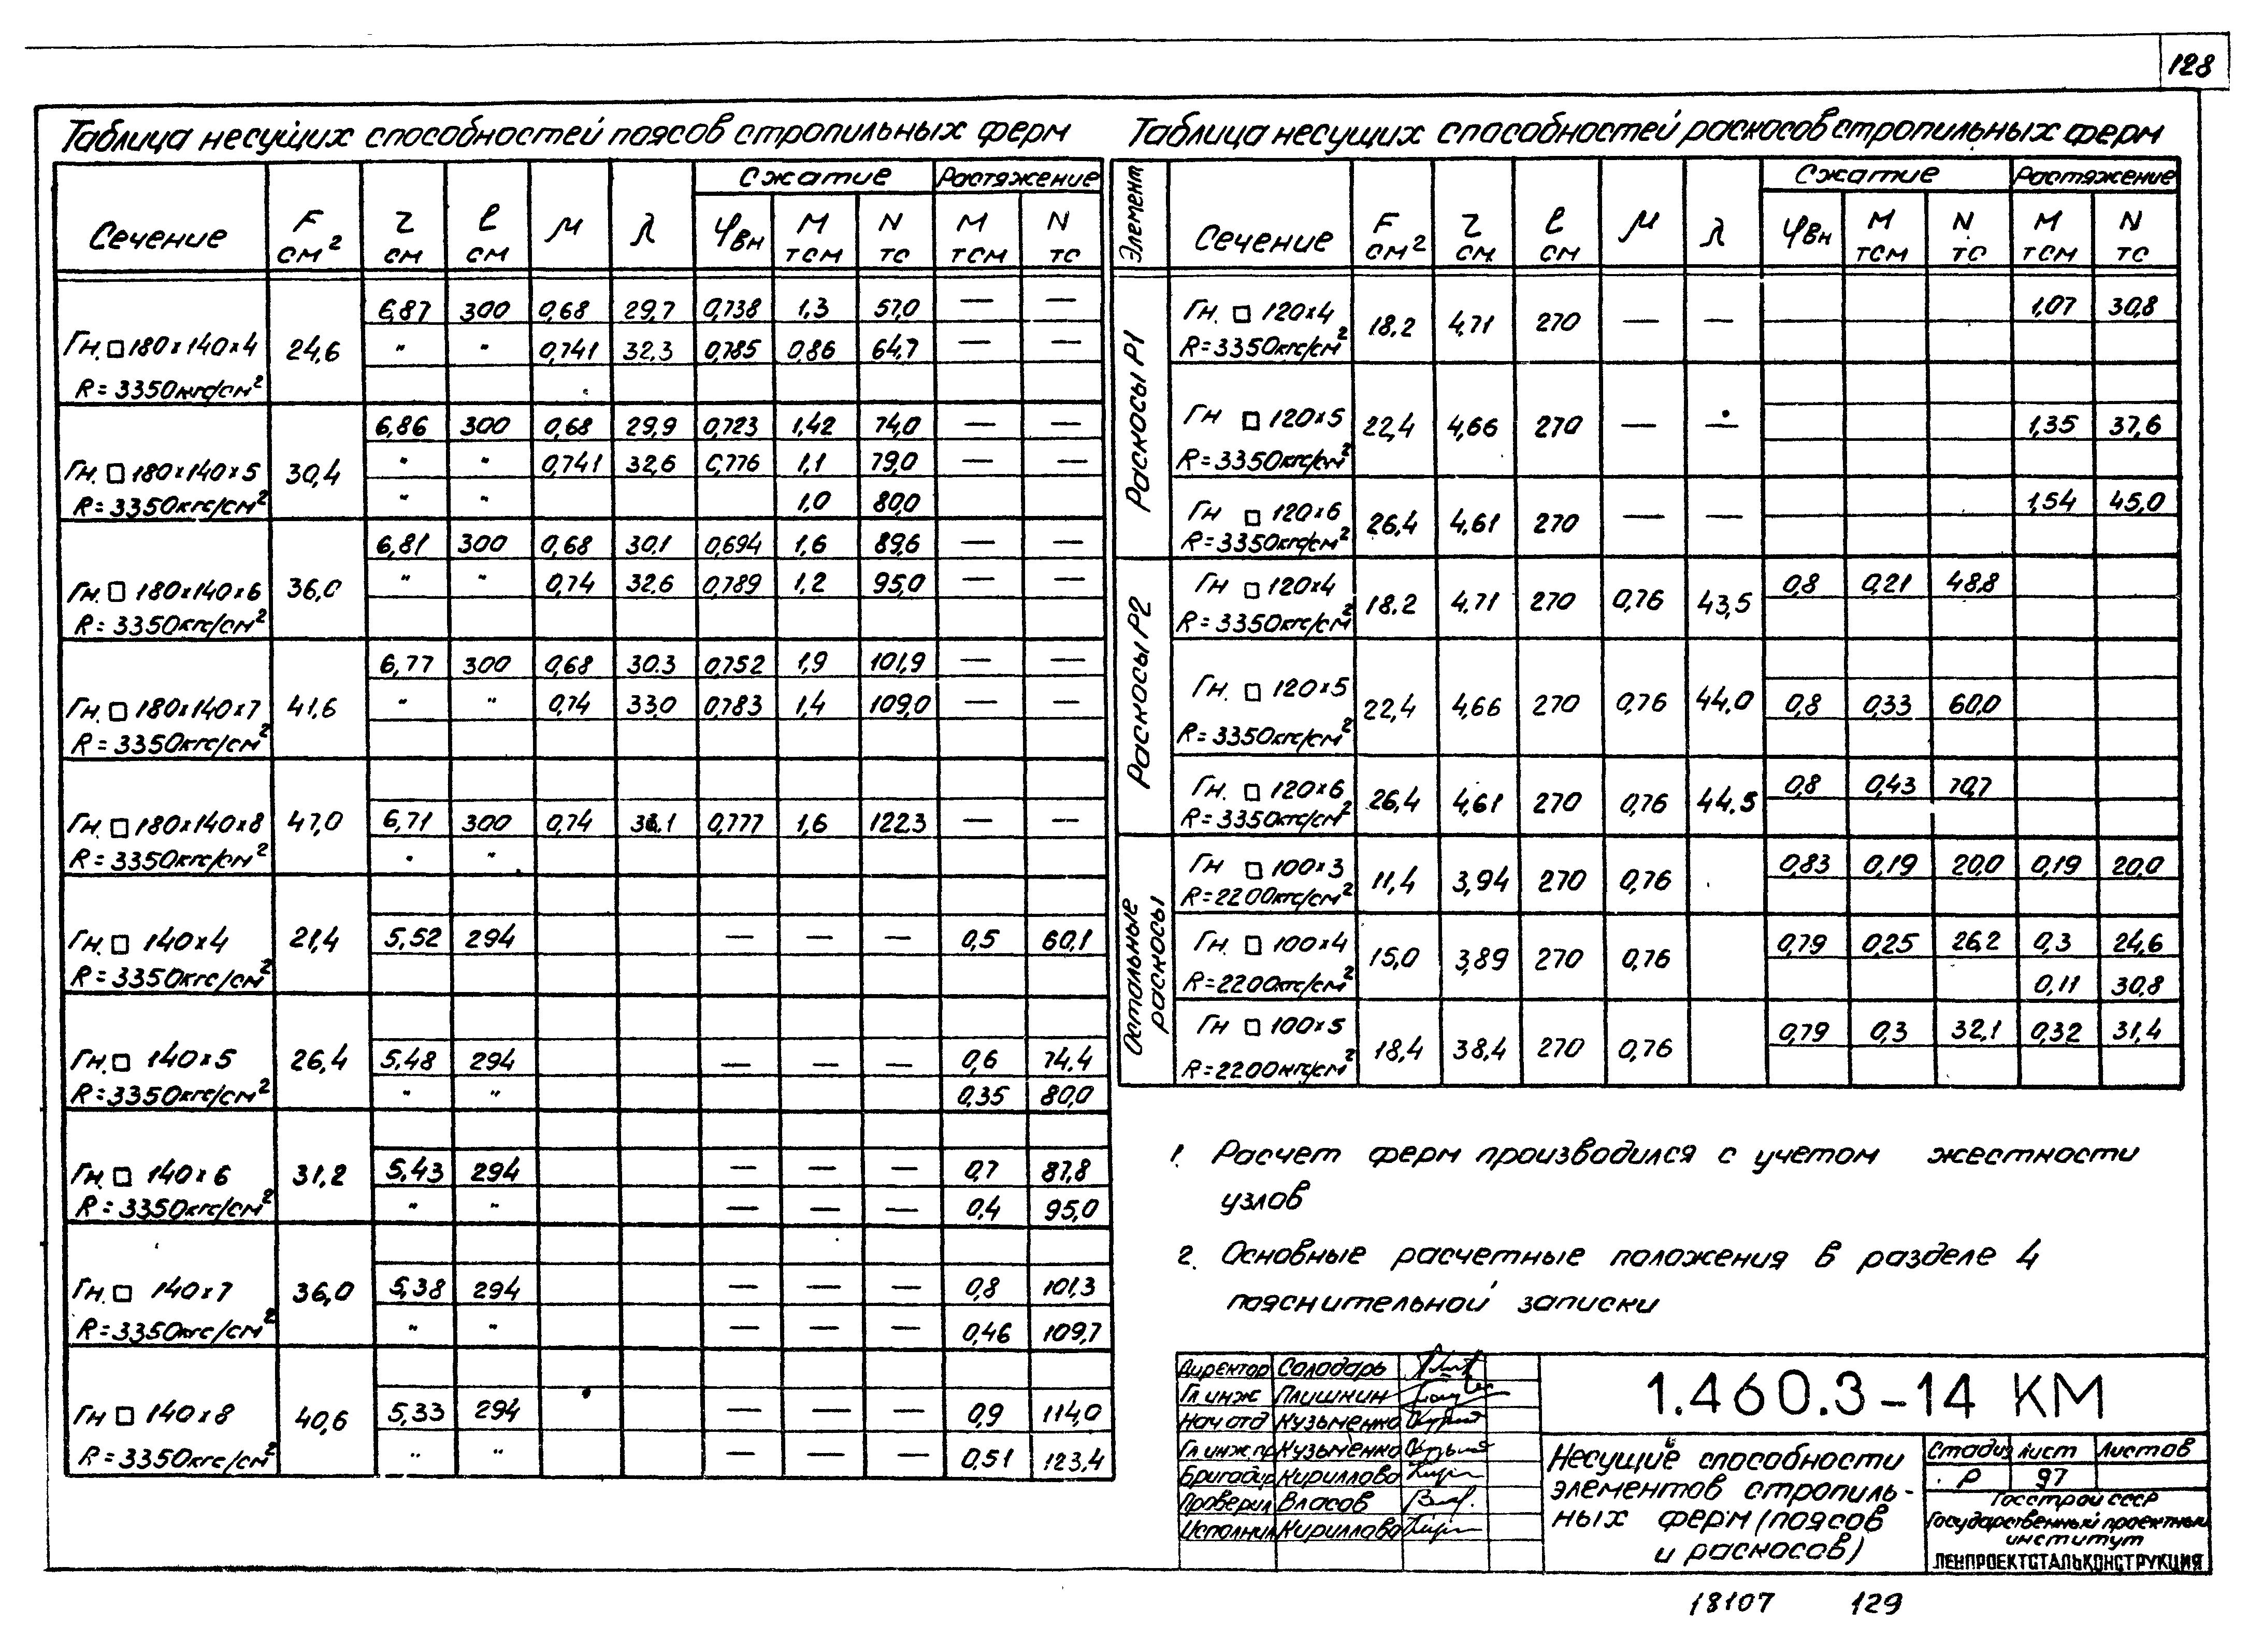 128
Таблица несущих способностей поясов стропильных ферм
Сечение F см² r см ℓ см μ λ Сжатие Растяжение
φвн М тсм N тс М тсм N тс
Гн. □ 180х140х4 R=3350кгс/см² 24,6 6,87 300 0,68 29,7 0,738 1,3 57,0 — —
" " 0,741 32,3 0,785 0,86 64,7 — —
Гн. □ 180х140х5 R=3350кгс/см² 30,4 6,86 300 0,68 29,9 0,723 1,42 74,0 — —
" " 0,741 32,6 0,776 1,1 79,0 — —
" " 1,0 80,0
Гн. □ 180х140х6 R=3350кгс/см² 36,0 6,81 300 0,68 30,1 0,694 1,6 89,6 — —
" " 0,74 32,6 0,789 1,2 95,0 — —
Гн. □ 180х140х7 R=3350кгс/см² 41,6 6,77 300 0,68 30.3 0,752 1,9 101,9 — —
" " 0,74 33,0 0,783 1,4 109,0 — —
Гн. □ 180х140х8 R=3350кгс/см² 47,0 6,71 300 0,74 0,777 1,6 122,3 — —
" "
Гн. □ 140х4 R=3350кгс/см² 21,4 5,52 294 — — — 0,5 60,1
Гн. □ 140х5 R=3350кгс/см² 26,4 5,48 294 — — — 0,6 74,4
" " 0,35 80,0
Гн. □ 140х6 R=3350кгс/см² 31,2 5,43 294 — — — 0,7 87,8
" " — — — 0,4 95,0
Гн. □ 140х7 R=3350кгс/см² 36,0 5,38 294 — — — 0,8 101,3
" " — — — 0,46 109,7
Гн □ 140х8 R=3350кгс/см² 40,6 5,33 294 — — — 0,9 114,0
" " — — — 0,51 123,4
Таблица несущих способностей раскосов стропильных ферм
Элемент Сечение F см² r см ℓ см μ λ Сжатие Растяжение
φвн М тсм N тс М тсм N тс
Раскосы Р1
Гн. □ 120х4 R=3350кгс/см² 18.2 4,71 270 — — 1,07 30,8
Гн □ 120х5 R=3350кгс/см² 22,4 4,66 270 — — 1,35 37,6
Гн □ 120х6 R=3350кгс/см² 26,4 4,61 270 — — 1,54 45,0
Раскосы Р2
Гн □ 120х4 R=3350кгс/см² 18.2 4,71 270 0,76 43,5 0,8 0,21 48,8
Гн. □ 120х5 R=3350кгс/см² 22,4 4,66 270 0,76 44,0 0,8 0,33 60,0
Гн. □ 120х6 R=3350кгс/см² 26,4 4,61 270 0,76 44.5 0,8 0,43 70,7
Остальные раскосы
Гн □ 100х3 R=2200кгс/см² 11,4 3,94 270 0,76 0,83 0,19 20,0 0,19 20,0
Гн. □ 100х4 R=2200кгс/см² 15,0 3,89 270 0,76 0,79 0,25 26,2 0,3 24,6
0,11 30,8
Гн □ 100х5 R=2200кгс/см² 18,4 38,4 270 0,76 0,79 0,3 32,1 0,32 31,4
1. Расчет ферм производился с учетом жесткости
узлов
2. Основные расчетные положения в разделе 4
пояснительной записки
Директор Солодарь
Гл инж Плишкин
Нач отд Кузьменко
Гл инж пр Кузьменко
Бригадир Кириллова
Проверил Власов
Исполнил Кириллова
1.460.3-14 КМ
Несущие способности
элементов стропиль-
ных ферм (поясов
и раскосов)
Стадия Лист Листов
Р 97
Госстрой СССР
Государственный проектный
институт
ЛЕНПРОЕКТСТАЛЬКОНСТРУКЦИЯ
18107 129